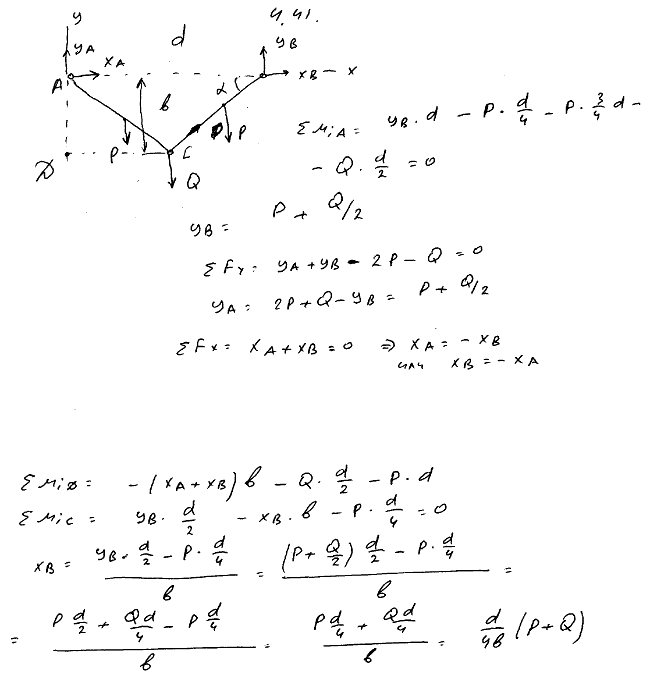 4.41.
y
yA
xA
d
yB
A
α
xB
x
b
P
C
P
D
Q
ΣmiA = yB · d − P · d/4 − P · 3/4 d −
− Q · d/2 = 0
yB = P + Q/2
ΣFy = yA + yB − 2P − Q = 0
yA = 2P + Q − yB = P + Q/2
ΣFx = xA + xB = 0 ⇒ xA = − xB
или xB = − xA
ΣmiD = − (xA + xB) b − Q · d/2 − P · d
ΣmiC = yB · d/2 − xB · b − P · d/4 = 0
xB = (yB · d/2 − P · d/4)/b = ((P + Q/2) d/2 − P · d/4)/b =
= (P d/2 + Qd/4 − P d/4)/b = (P d/4 + Qd/4)/b = d/4b (P + Q)